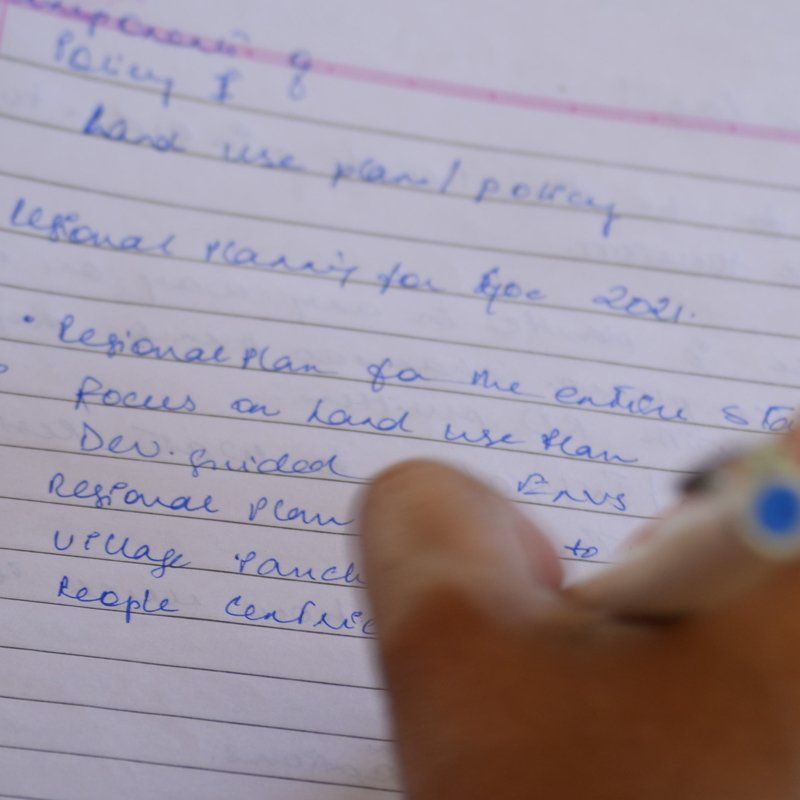 Policy &
Land use plan/policy
Regional Planning for Goa 2021.
• Regional Plan for the entire sta
Focus on Land use Plan
Dev. guided Envs
Regional Plan to
Village Panch
People centric